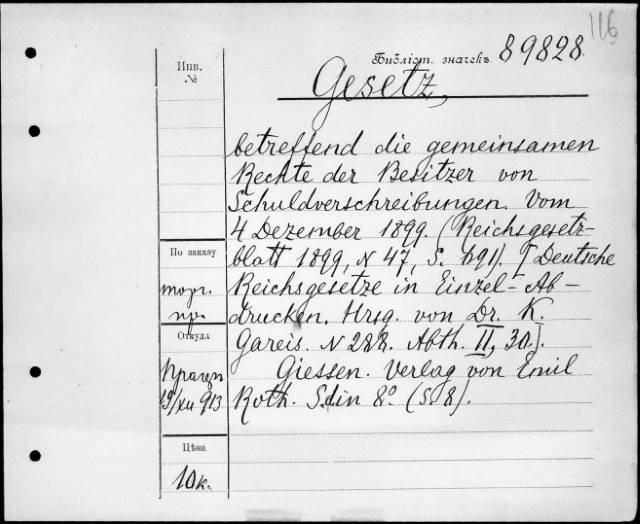 116
Библіот. значекъ 89828
Инв.
№
Gesetz,
betreffend die gemeinsamen
Rechte der Besitzer von
Schuldverschreibungen. Vom
4 Dezember 1899. (Reichsgesetz-
blatt 1899, N 47, S. 691). [Deutsche
Reichsgesetze in Einzel-Ab-
drucken. Hrsg. von Dr. K.
Gareis. N 282. Abth. II, 30].
Giessen. Verlag von Emil
Roth. S. d. in 8° (S. 8).
По заказу
торг.
пр.
Откуда
19/XII 913
Цѣна
10 к.